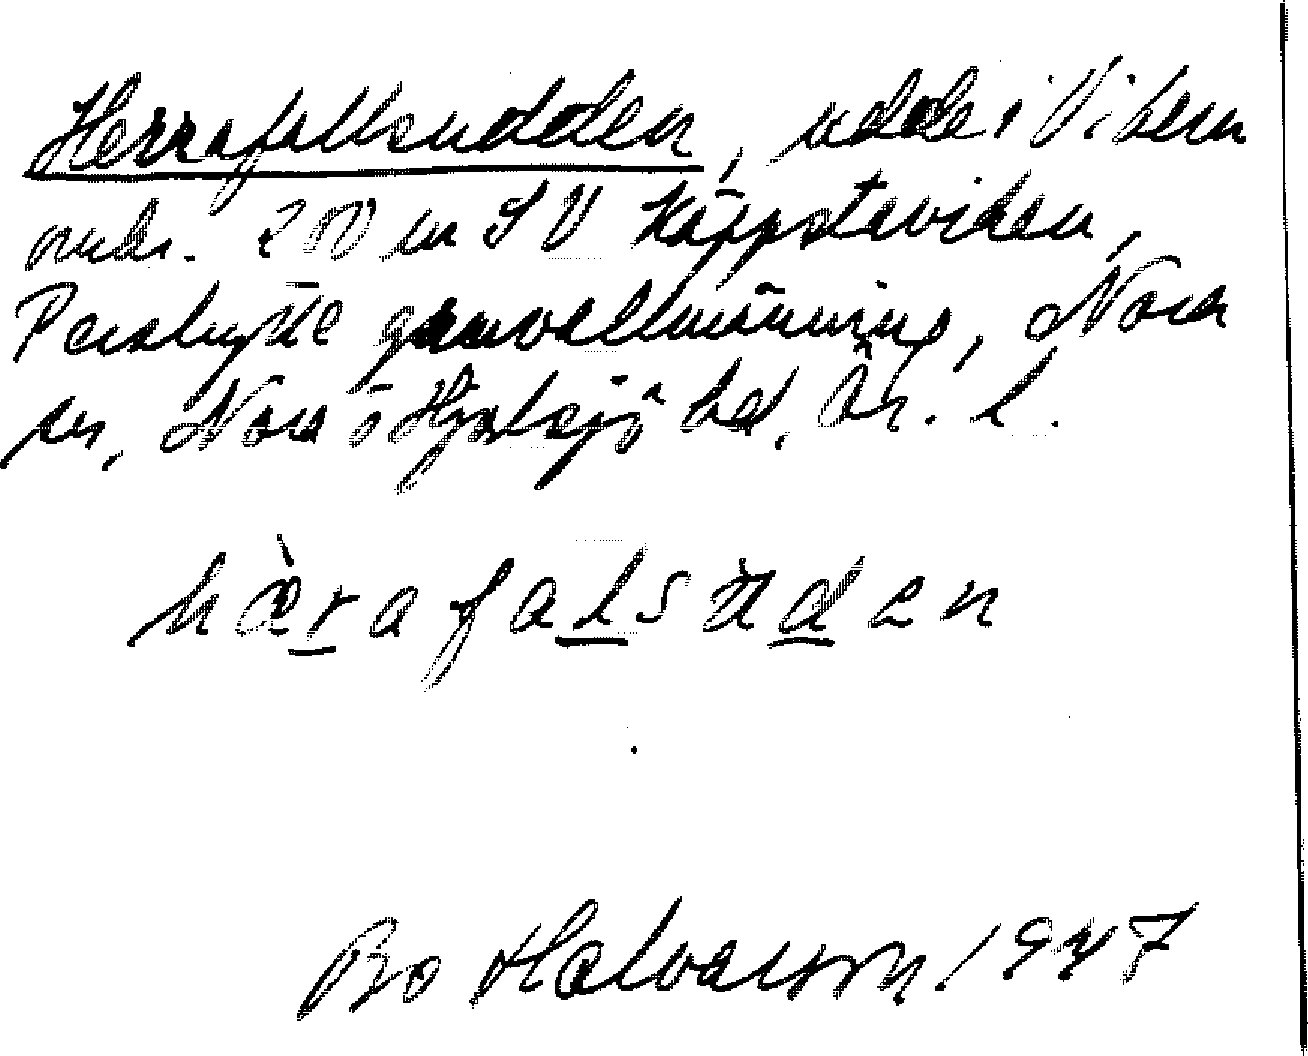 Herrafallsudden, udde i Vikern
omkr. 200 m SV Käppstaviken,
Pershytte gruvallmänning, Nora
sn, Nora o Hjulsjö bd, Ör. l.
hàrafalsùden
Bo Halvarson 1947